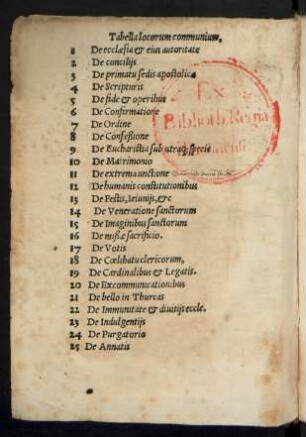 Tabella locorum communium,
1 De ecclesia & eius autoritate
2 De concilijs
3 De primatu sedis apostolicæ
4 De Scripturis
5 De fide & operibus
6 De Confirmatione
7 De Ordine
8 De Confessione
9 De Eucharistia sub utraq; specie
10 De Matrimonio
11 De extrema unctione
12 De humanis constitutionibus
13 De Festis, Ieiunijs, &c
14 De Veneratione sanctorum
15 De Imaginibus sanctorum
16 De missæ sacrificio.
17 De Votis
18 De Cœlibatu clericorum,
19 De Cardinalibus & Legatis.
20 De Excommunicationibus
21 De bello in Thurcas
22 De Immunitate & diuitijs eccle.
23 De Indulgentijs
24 De Purgatorio
25 De Annatis
Ex
Biblioth. Regia